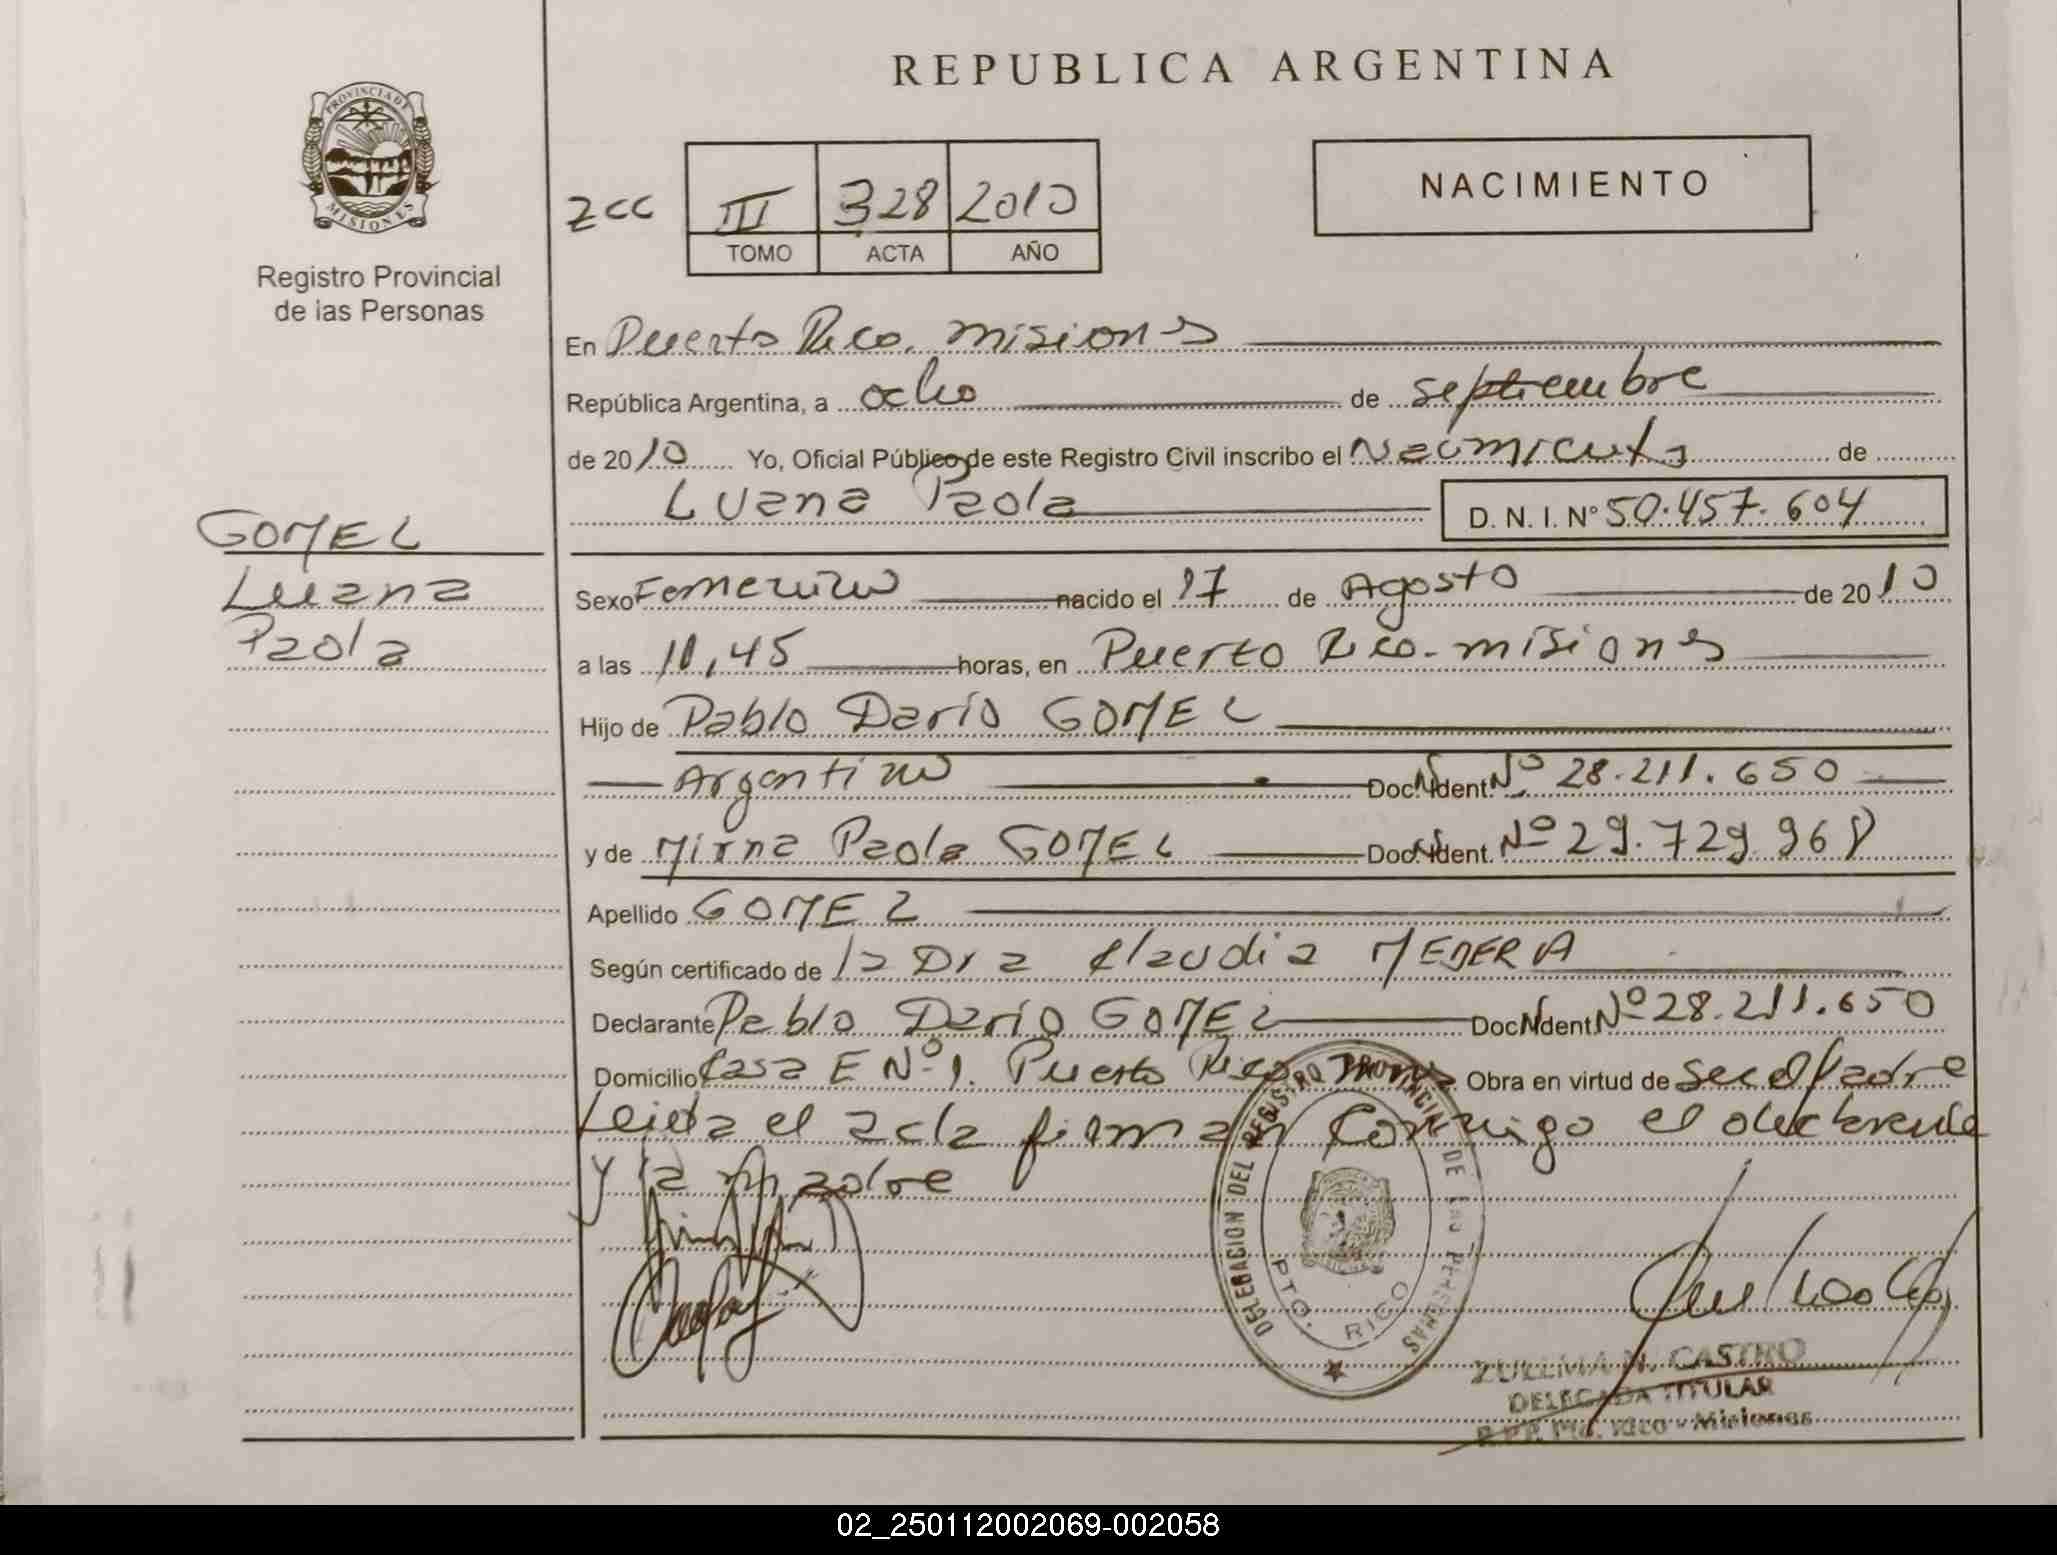 REPUBLICA ARGENTINA
PROVINCIA DE
MISIONES
Registro Provincial
de las Personas
zcc III 328 2010
TOMO ACTA AÑO
NACIMIENTO
En Puerto Rico. misiones
República Argentina, a ocho de septiembre
de 2010 Yo, Oficial Público de este Registro Civil inscribo el Nacimiento de
Luana Paola D. N. I. Nº 50.457.604
GOMEZ
Luana
Paola
Sexo Femenino nacido el 17 de Agosto de 2010
a las 11,45 horas, en Puerto Rico. misiones
Hijo de Pablo Dario GOMEZ
Argentino Doc. Ident. Nº 28.211.650
y de Mirna Paola GOMEZ Doc. Ident. Nº 29.729.968
Apellido GOMEZ
Según certificado de la Dra Claudia
Declarante Pablo Dario GOMEZ Doc. Ident. Nº 28.211.650
Domicilio Casa E Nº 1. Puerto Rico Obra en virtud de ser el Padre
Leida el acta firman conmigo el declarante
y la madre
DELEGACION DEL REGISTRO PROVINCIAL DE LAS PERSONAS
PTO. RICO
ZULLMA N. CASTRO
DELEGADA TITULAR
R.P.P. Pto. Rico - Misiones
02_250112002069-002058